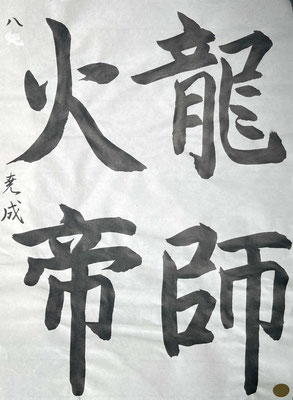 龍師
火帝
八
尭成